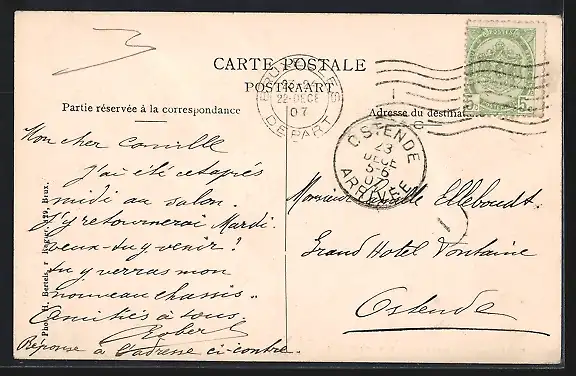 CARTE POSTALE
POSTKAART
Partie réservée à la correspondance
Adresse du destinat
BRUXELLES
22 DECE
07
DEPART
OSTENDE
23
DECE
5-6
07
ARRIVÉE
5c
5c
Mon cher Camille
J'ai été cet après
midi au salon.
J'y retournerai Mardi.
veux-tu y venir ?
tu y verras mon
nouveau chassis..
Amitiés à tous.
Robert
Réponse à l'adresse ci-contre.
Monsieur Camille Elleboudt
Grand Hotel Fontaine
Ostende
Phot. H. Bertels, r 229, Brux.